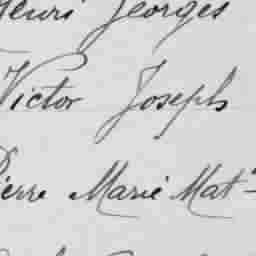 Henri Georges
Victor Joseph
Pierre Marie Mat